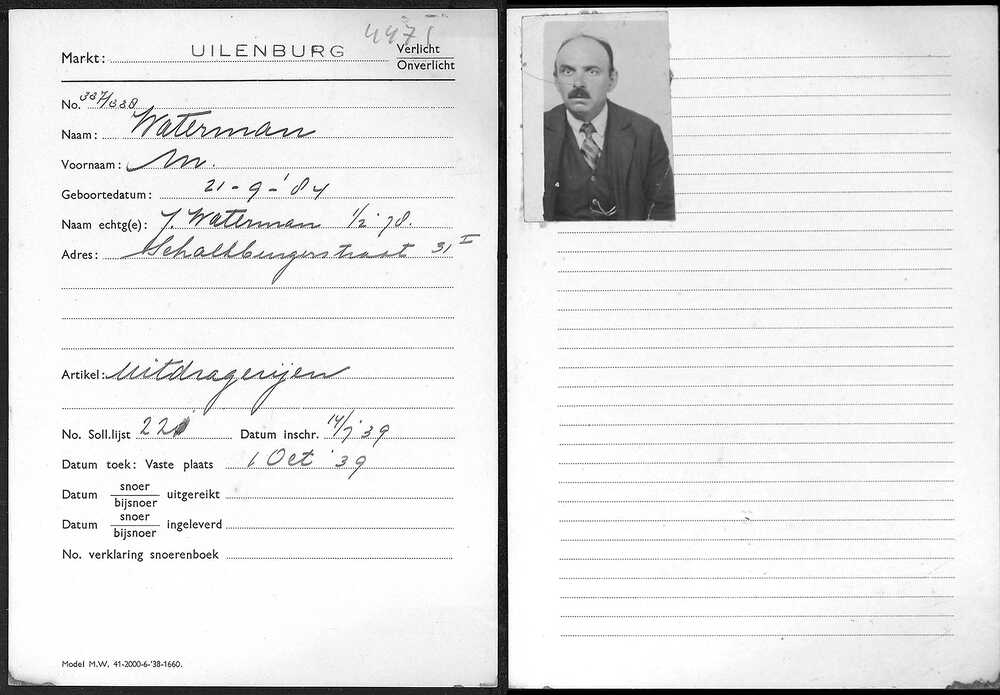 4471
Markt: UILENBURG Verlicht
Onverlicht
No. 337/338
Naam: Waterman
Voornaam: M.
Geboortedatum: 21-9-'84
Naam echtg(e): J. Waterman 1/2 '78.
Adres: Schalkburgerstraat 31 I
Artikel: Uitdragerijen
No. Soll.lijst 22 Datum inschr. 14/7 '39
Datum toek: Vaste plaats 1 Oct '39
Datum snoer
bijsnoer uitgereikt
Datum snoer
bijsnoer ingeleverd
No. verklaring snoerenboek
Model M.W. 41-2000-6-'38-1660.